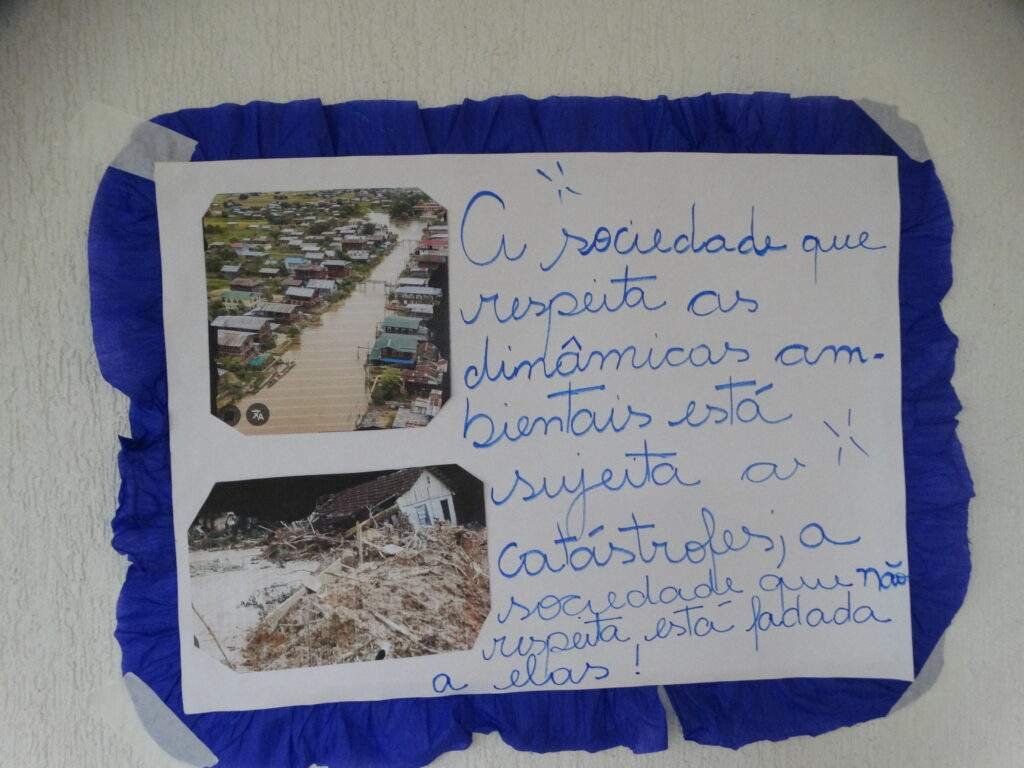 A sociedade que
respeita as
dinâmicas am-
bientais está
sujeita a
catástrofes; a
sociedade que não
respeita, está fadada
a elas!